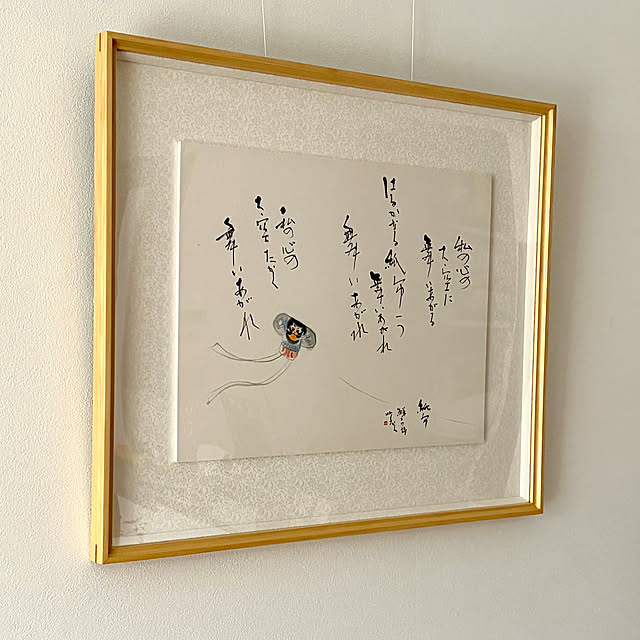 私の心の
大空に
舞いあがる
はるかなる紙鳶よ
舞いあがれ
舞いあがれ
私の心の
大空たかく
舞いあがれ
紙鳶